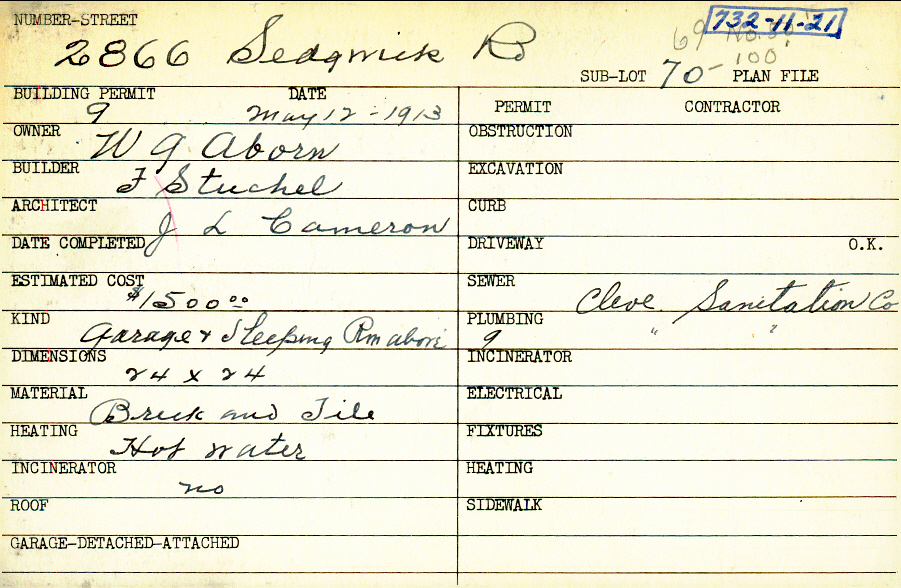 NUMBER-STREET
2866 Sedgwick Rd
732-11-21
69
100'
SUB-LOT 70- PLAN FILE
BUILDING PERMIT DATE
9 May 12-1913
OWNER W G Aborn
BUILDER F Stuchel
ARCHITECT J L Cameron
DATE COMPLETED
ESTIMATED COST $1500.00
KIND Garage & Sleeping Rm above
DIMENSIONS 24 x 24
MATERIAL Brick and Tile
HEATING Hot water
INCINERATOR no
ROOF
GARAGE-DETACHED-ATTACHED
PERMIT CONTRACTOR
OBSTRUCTION
EXCAVATION
CURB
DRIVEWAY O.K.
SEWER Cleve. Sanitation Co
PLUMBING 9 " "
INCINERATOR
ELECTRICAL
FIXTURES
HEATING
SIDEWALK